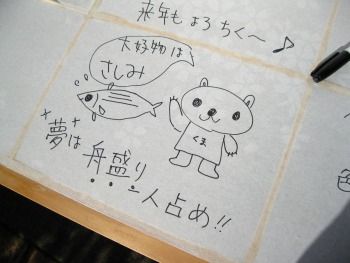 来年もよろちく〜♪
大好物は、
さしみ
くま
夢は
舟盛り
一人占め!!
色